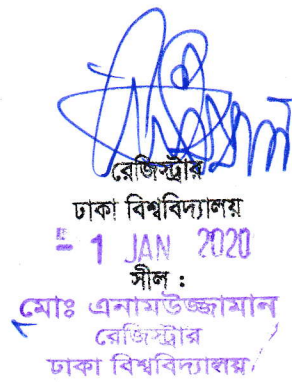 রেজিস্ট্রার
ঢাকা বিশ্ববিদ্যালয়
- 1 JAN 2020
সীল :
মোঃ এনামউজ্জামান
রেজিস্ট্রার
ঢাকা বিশ্ববিদ্যালয়